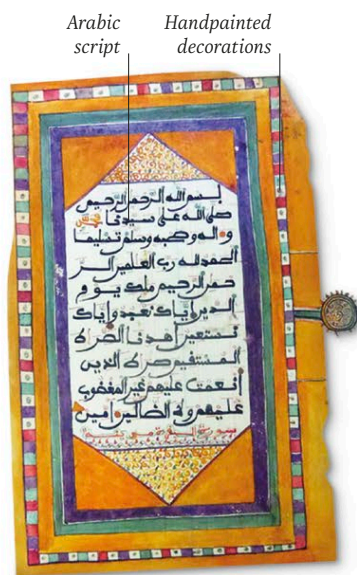 Arabic
script
Handpainted
decorations
بسم الله الرحمن الرحيم
صلى الله على سيدنا محمد
واله وصحبه وسلم تسليما
الحمد لله رب العلمين الر
حمن الرحيم ملك يوم
الدين إياك نعبد وإياك
نستعين اهدنا الصراط
المستقيم صراط الذين
أنعمت عليهم غير المغضوب
عليهم ولا الضالين امين